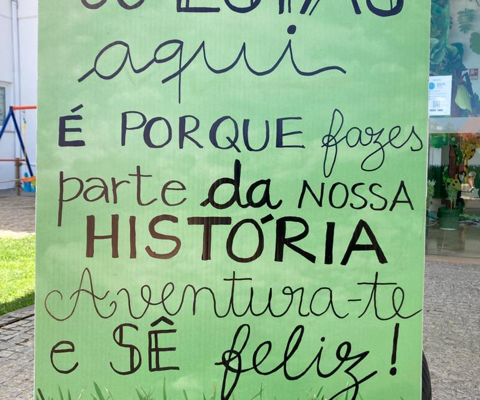 Se ESTÁS
aqui
É PORQUE fazes
parte da NOSSA
HISTÓRIA
Aventura-te
e SÊ feliz!